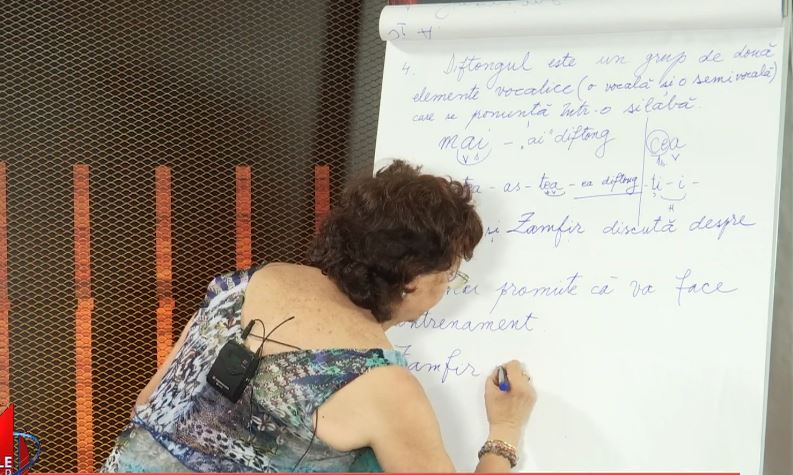 4. Diftongul este un grup de două
elemente vocalice (o vocală și o semivocală)
care se pronunță într-o silabă.
mai – „ai” diftong cea
v s v
as - tea - ea diftong - ti - i -
H
și Zamfir discută despre
promite că va face
antrenament.
Zamfir
LE